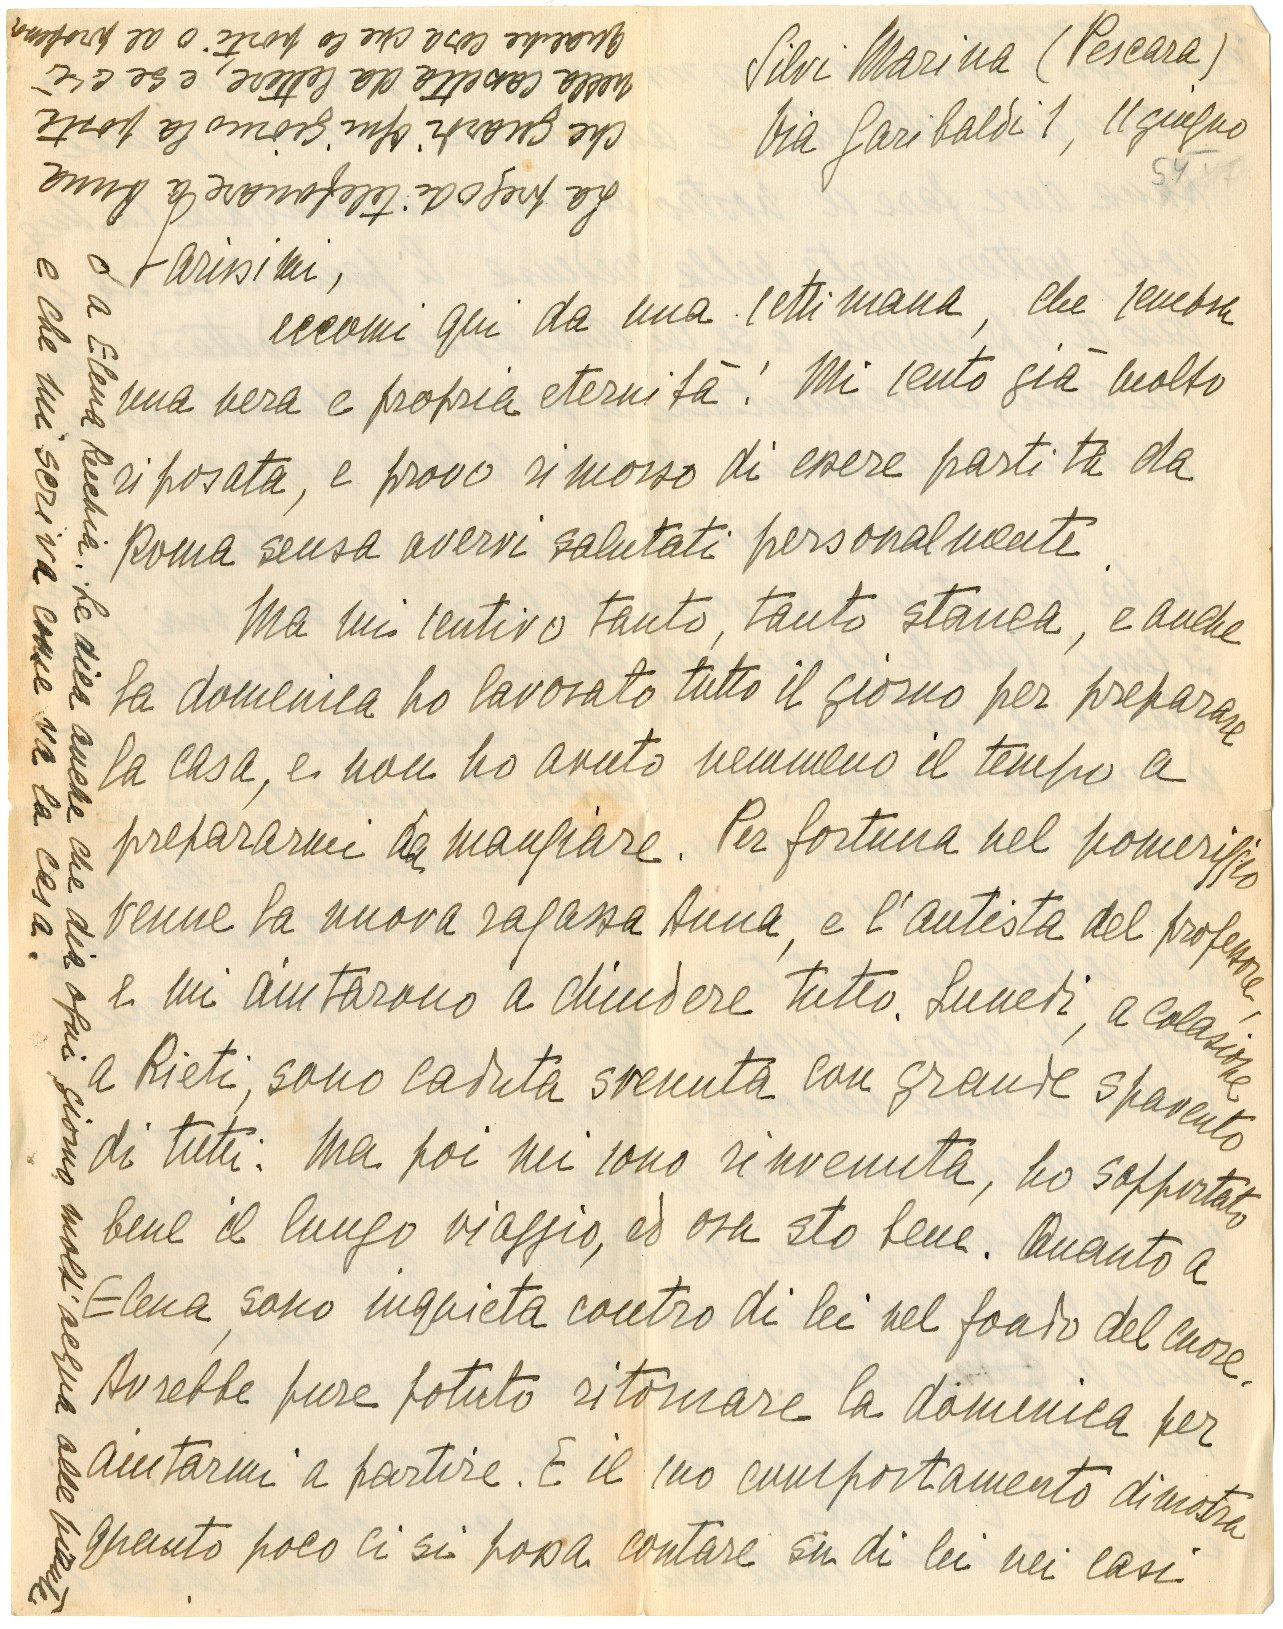 Silvi Marina (Pescara)
Via Garibaldi 1, 11 giugno
54
Carissimi,
eccomi qui da una settimana, che sembra
una vera e propria eternità! Mi sento già molto
riposata, e provo rimorso di essere partita da
Roma senza avervi salutati personalmente.
Ma mi sentivo tanto, tanto stanca, e anche
la domenica ho lavorato tutto il giorno per preparare
la casa, e non ho avuto nemmeno il tempo a
prepararmi da mangiare. Per fortuna nel pomeriggio
venne la nuova ragazza Anna, e l'autista del professore,
e mi aiutarono a chiudere tutto. Lunedì, a colazione
a Rieti, sono caduta svenuta con grande spavento
di tutti. Ma poi mi sono rinvenuta, ho sopportato
bene il lungo viaggio, ed ora sto bene. Quanto a
Elena, sono inquieta contro di lei nel fondo del cuore.
Avrebbe pure potuto ritornare la domenica per
aiutarmi a partire. E il suo comportamento dimostra
quanto poco ci si possa contare su di lei nei casi
La prego di telefonare a Anna
che guardi ogni giorno la posta
nella cassetta da lettere, e se c'è
qualche cosa che lo porti o al professore
o a Elena Recchia. Le dica anche che dia ogni giorno molt'acqua alle piante
e che mi scriva come va la casa.